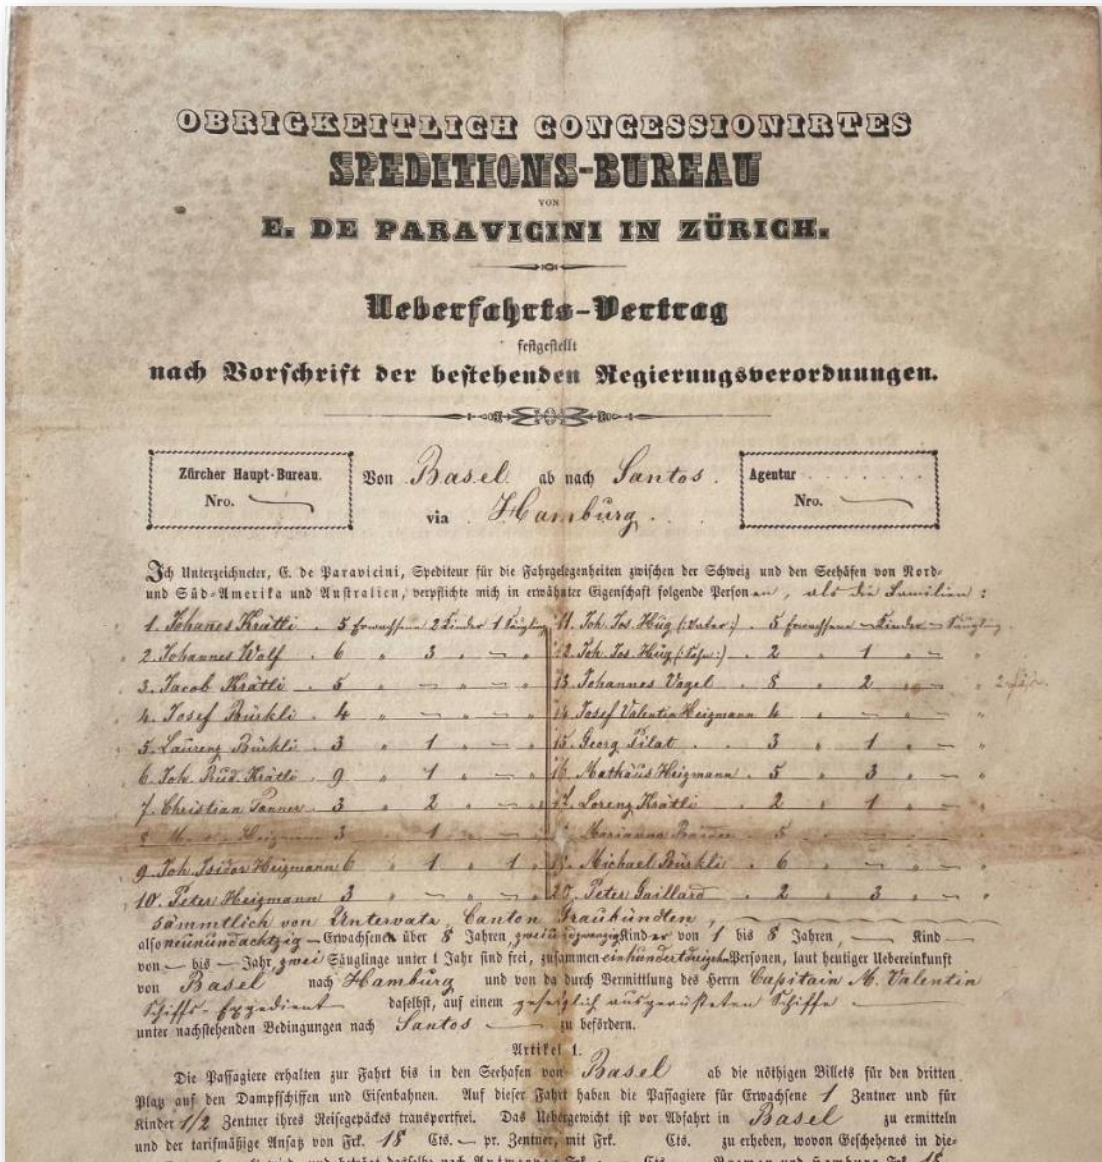 OBRIGKEITLICH CONCESSIONIRTES
SPEDITIONS-BUREAU
VON
E. DE PARAVICINI IN ZÜRICH.
Ueberfahrts-Vertrag
festgestellt
nach Vorschrift der bestehenden Regierungsverordnungen.
Zürcher Haupt-Bureau.
Nro.
Von Basel ab nach Santos.
via Hamburg.
Agentur
Nro.
Ich Unterzeichneter, E. de Paravicini, Spediteur für die Fahrgelegenheiten zwischen der Schweiz und den Seehäfen von Nord-
und Süd-Amerika und Australien, verpflichte mich in erwähnter Eigenschaft folgende Personen, als die Familien:
1. Johanes Krätli . 5 Erwachsene 2 Kinder 1 Säugling
2. Johannes Wolf . 6 " 3 " — "
3. Jacob Krätli 5 " — " — "
4. Josef Bürkli . 4 " — " — "
5. Laurenz Bürkli . 3 " 1 " — "
6. Joh. Rud. Krätli 9 " 1 " — "
7. Christian Tanner 3 " 2 " — "
8 Heizmann 3 " 1 " — "
9. Joh. Isidor Heizmann 6 " 1 " 1 "
10. Peter Heizmann 3 " — " — "
11. Joh. Jos. Hug (:Vater:) . 5 Erwachsene — Kinder — Säugling
12. Joh. Jos. Hug (:Sohn:) . 2 " 1 " — "
13. Johannes Vogel . 8 " 2 " — "
14. Josef Valentin Heizmann 4 " — " — "
15. Georg Pilat . . 3 " 1 " — "
16. Mathäus Heizmann . 5 " 3 " — "
17. Lorenz Krätli . 2 " 1 " — "
Marianna 5 " — " — "
Michael Bürkli . 6 " — " — "
20. Peter Gaillard . 2 " 3 " — "
sämmtlich von Untervatz, Canton Graubündten,
also neunundachtzig — Erwachsenen über 8 Jahren, zweiundzwanzig Kinder von 1 bis 8 Jahren, — Kind —
von — bis — Jahr, zwei Säuglinge unter 1 Jahr sind frei, zusammen einhundertdreizehn Personen, laut heutiger Uebereinkunft
von Basel nach Hamburg und von da durch Vermittlung des Herrn Capitain M. Valentin
Schiffs-Expedient daselbst, auf einem gesetzlich ausgerüsteten Schiffe
unter nachstehenden Bedingungen nach Santos — zu befördern.
Artikel 1.
Die Passagiere erhalten zur Fahrt bis in den Seehafen von Basel ab die nöthigen Billets für den dritten
Platz auf den Dampfschiffen und Eisenbahnen. Auf dieser Fahrt haben die Passagiere für Erwachsene 1 Zentner und für
Kinder 1/2 Zentner ihres Reisegepäckes transportfrei. Das Uebergewicht ist vor Abfahrt in Basel zu ermitteln
und der tarifmäßige Ansatz von Frk. 18 Cts. — pr. Zentner, mit Frk. Cts. zu erheben, wovon Geschehenes in die-